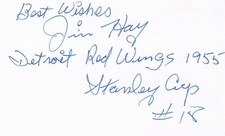 Best Wishes
Jim Hay
Detroit Red Wings 1955
Stanley Cup
#18